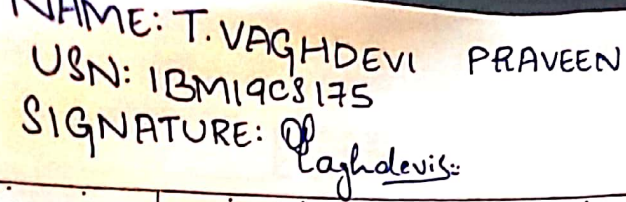 NAME: T. VAGHDEVI PRAVEEN
USN: 1BM19CS175
SIGNATURE: Vaghdevi